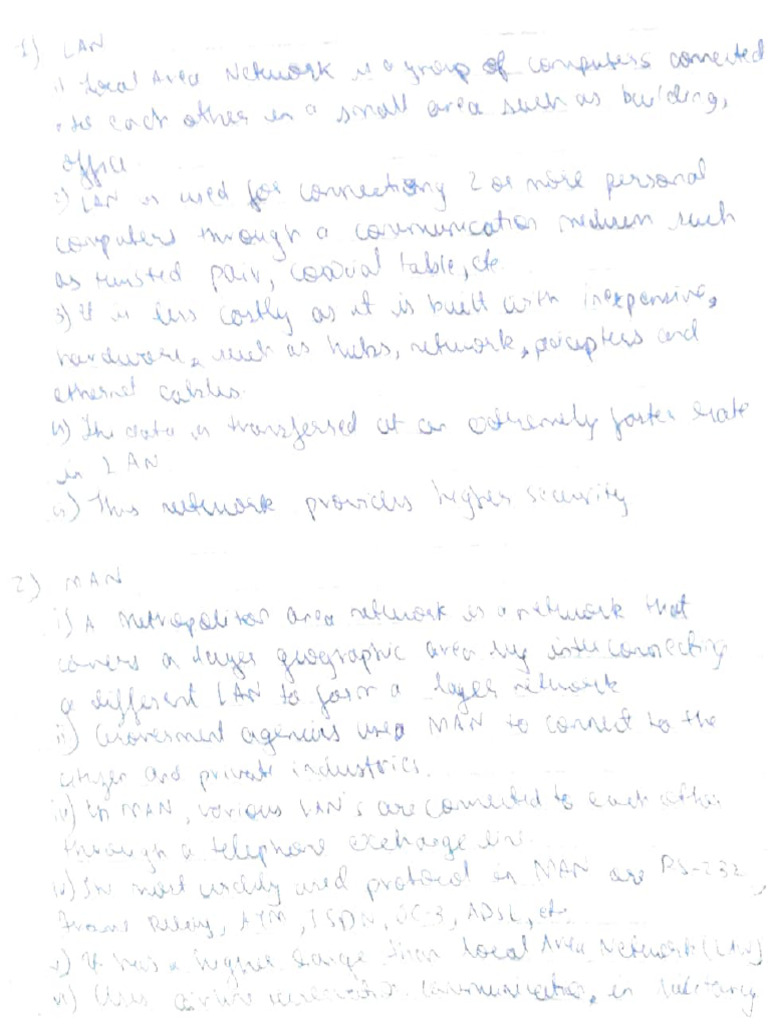 1) LAN
i) Local Area Network is a group of computers connected
to each other in a small area such as building,
office
2) LAN is used for connectiong 2 or more personal
computers through a communication medium such
as twisted pair, coaxial table, etc
3) It is less costly as it is built with inexpensive,
hardware, such as hubs, network, and
ethernet cables.
4) The data is transferred at an extremely faster rate
in LAN
5) This network provides higher security
2) MAN
i) A Metropolitan area network is a network that
covers a larger geographic area by interconnecting
a different LAN to form a larger network
ii) Government agencies uses MAN to connect to the
citizen and private industries.
iii) In MAN, various LAN's are connected to each other
through a telephone exchange line
iv) In most widely used protocol in MAN are RS-232,
Frame Relay, ATM, ISDN, OC-3, ADSL, etc
v) It has a higher range than Local Area Network (LAN)
vi) Uses airline communication, in military